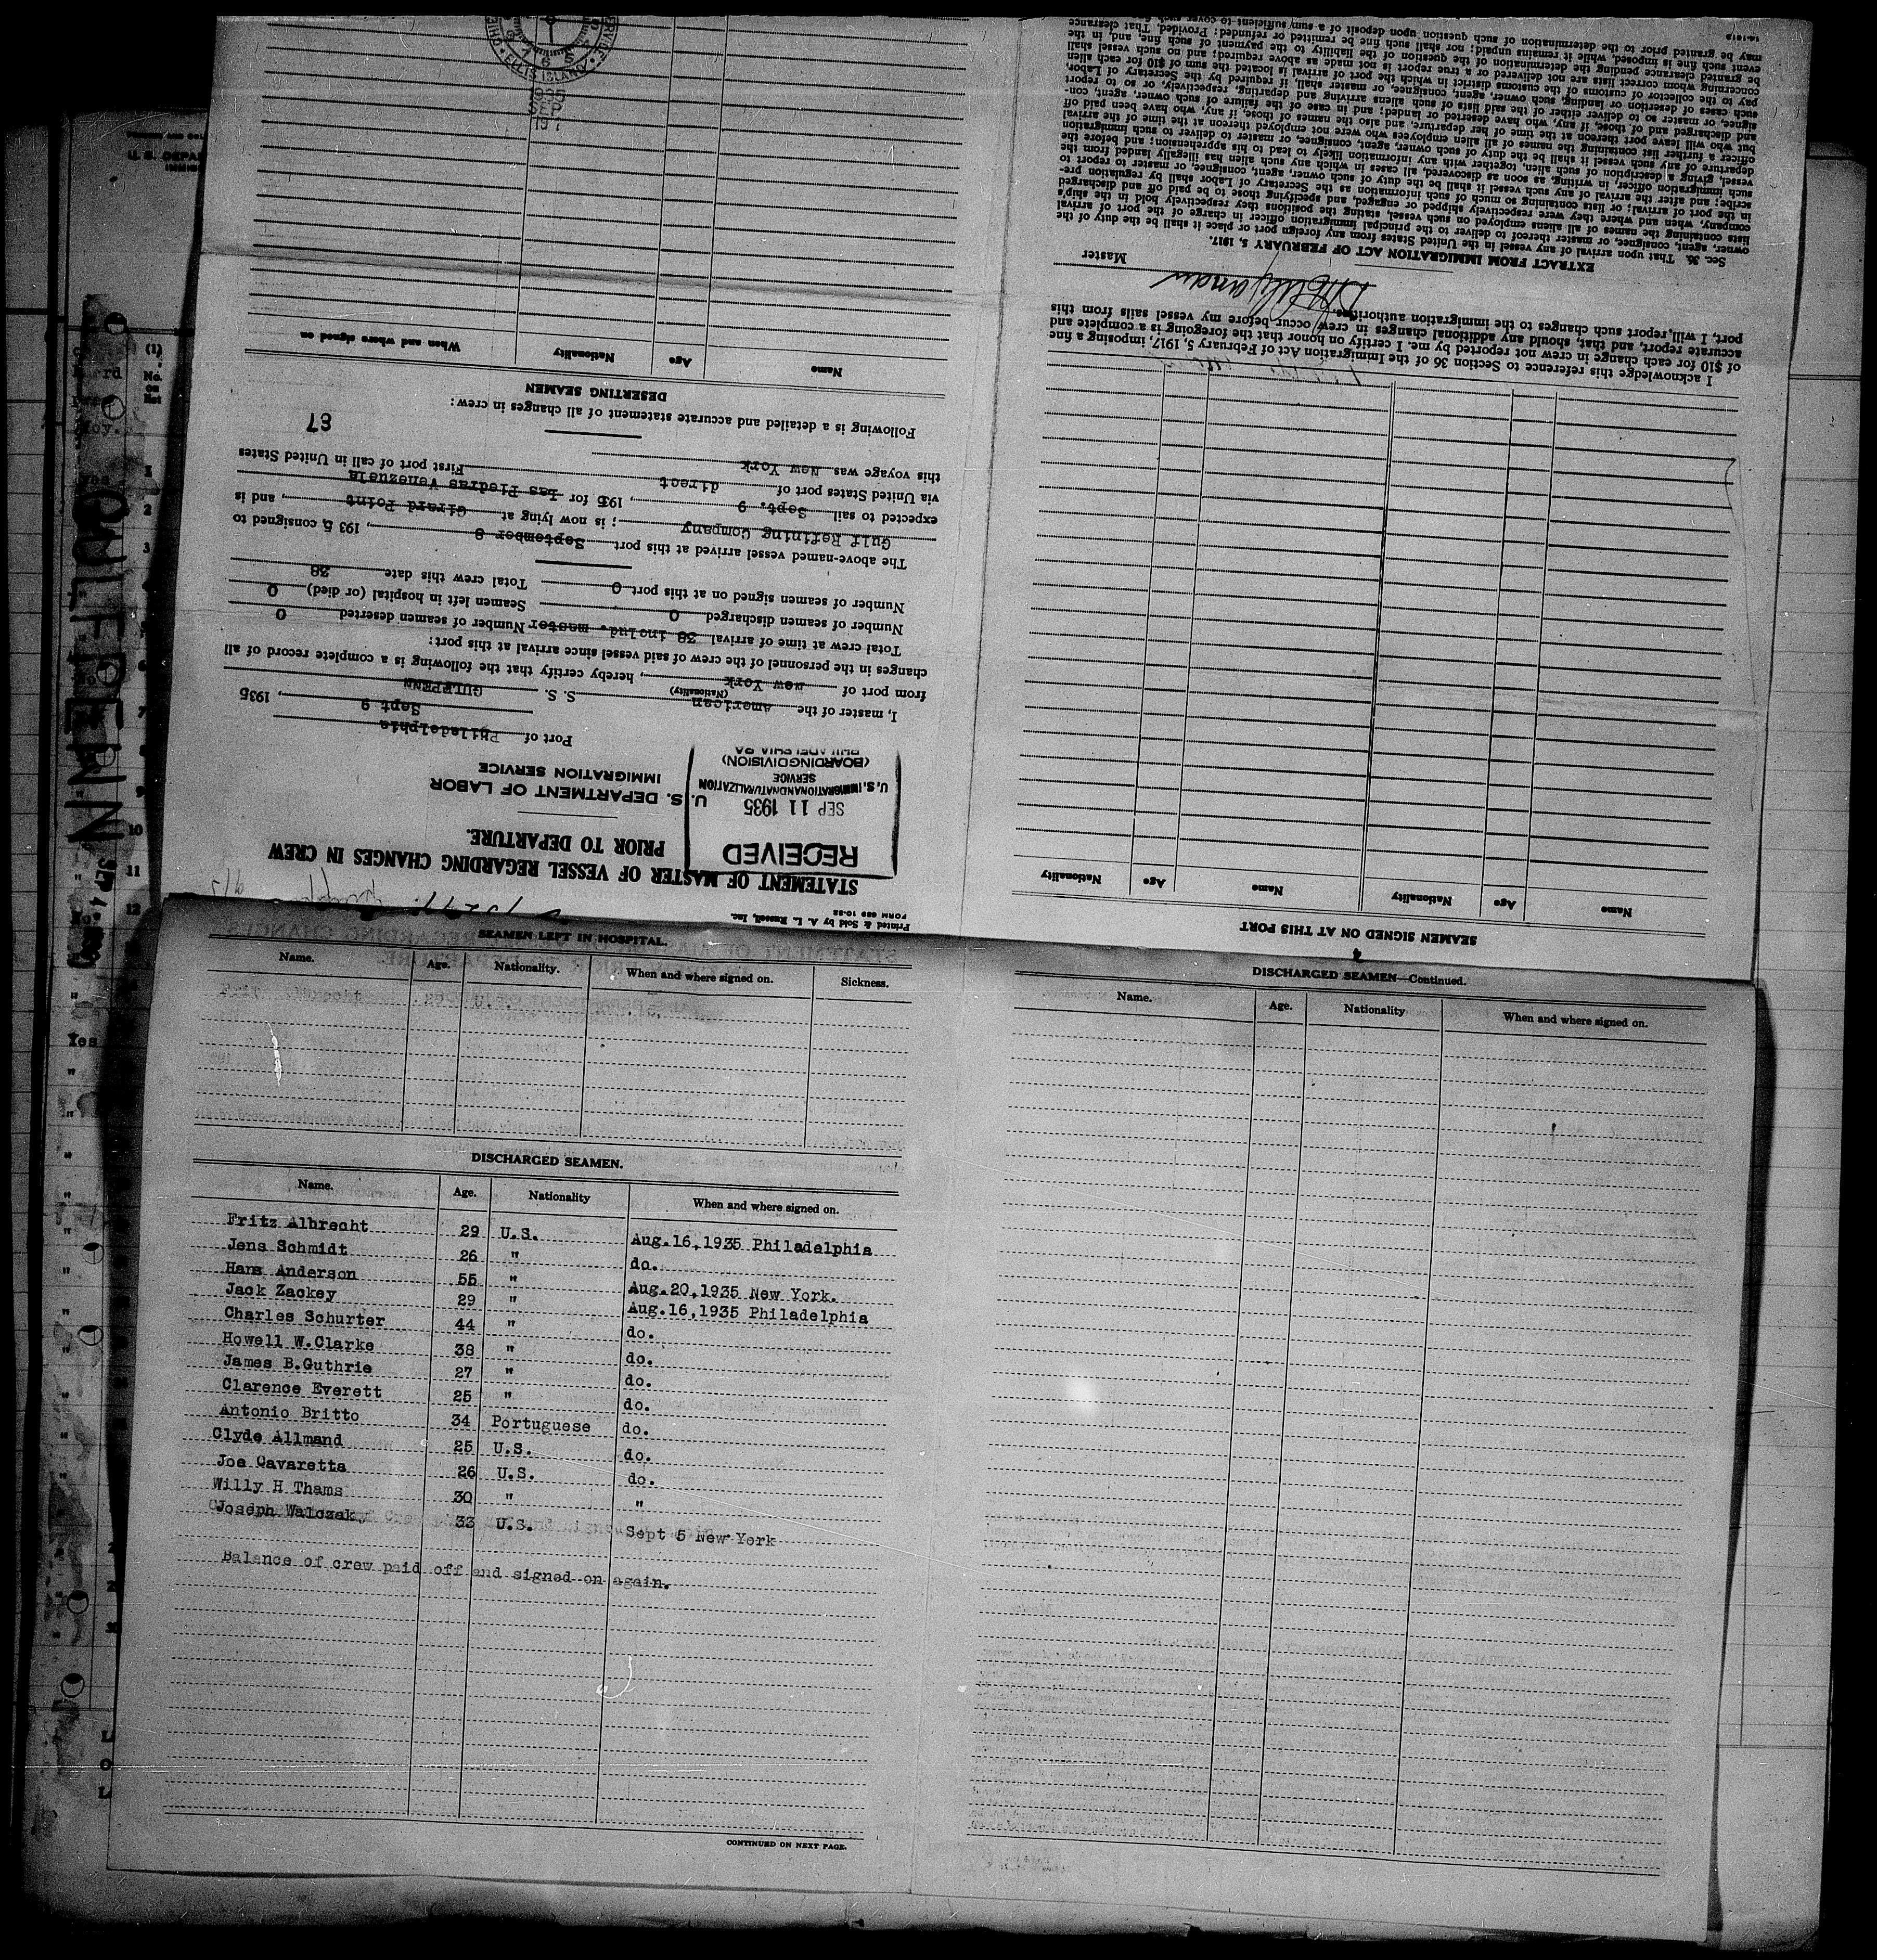 Printed & Sold by A. L. Russell, Inc.
FORM 689 10-32
STATEMENT OF MASTER OF VESSEL REGARDING CHANGES IN CREW
PRIOR TO DEPARTURE.
RECEIVED
SEP 11 1935
U.S. IMMIGRATION AND NATURALIZATION
SERVICE
(BOARDING DIVISION)
PHILADELPHIA PA
U. S. DEPARTMENT OF LABOR
IMMIGRATION SERVICE
Port of Philadelphia
Sept 9, 1935
I, master of the American S. S. GULFPENN
(Nationality)
from port of New York, hereby certify that the following is a complete record of all
changes in the personnel of the crew of said vessel since arrival at this port:
Total crew at time of arrival 38 includ. master Number of seamen deserted 0
Number of seamen discharged 0 Seamen left in hospital (or died) 0
Number of seamen signed on at this port 0 Total crew this date 38
The above-named vessel arrived at this port September 8, 1935, consigned to
Gulf Refining Company; is now lying at Girard Point, and is
expected to sail Sept. 9, 1935 for Las Piedras Venezuela
via United States port of direct First port of call in United States
this voyage was New York
87
Following is a detailed and accurate statement of all changes in crew:
DESERTING SEAMEN
Name Age Nationality When and where signed on
1935
SEP
ELLIS ISLAND
SEAMEN SIGNED ON AT THIS PORT
Name Age Nationality Name Age Nationality
I acknowledge this reference to Section 36 of the Immigration Act of February 5, 1917, imposing a fine
of $10 for each change in crew not reported by me. I certify on honor that the foregoing is a complete and
accurate report, and that, should any additional changes in crew occur before my vessel sails from this
port, I will report such changes to the immigration authorities.
Master
EXTRACT FROM IMMIGRATION ACT OF FEBRUARY 5, 1917.
Sec. 36. That upon arrival of any vessel in the United States from any foreign port or place it shall be the duty of the
owner, agent, consignee, or master thereof to deliver to the principal immigration officer in charge of the port of arrival
lists containing the names of all aliens employed on such vessel, stating the positions they respectively hold in the ship's
company, when and where they were respectively shipped or engaged, and specifying those to be paid off and discharged
in the port of arrival; or lists containing so much of such information as the Secretary of Labor shall by regulation pre-
scribe; and after the arrival of any such vessel it shall be the duty of such owner, agent, consignee, or master to report to
such immigration officer, in writing, as soon as discovered, all cases in which any such alien has illegally landed from the
vessel, giving a description of such alien, together with any information likely to lead to his apprehension; and before the
departure of any such vessel it shall be the duty of such owner, agent, consignee, or master to deliver to such immigration
officer a further list containing the names of all alien employees who were not employed thereon at the time of the arrival
but who will leave port thereon at the time of her departure, and also the names of those, if any, who have been paid off
and discharged and of those, if any, who have deserted or landed; and in case of the failure of such owner, agent, con-
signee, or master so to deliver either of the said lists of such aliens arriving and departing, respectively, or so to report
such cases of desertion or landing, such owner, agent, consignee, or master shall, if required by the Secretary of Labor,
pay to the collector of customs of the customs district in which the port of arrival is located the sum of $10 for each alien
concerning whom correct lists are not delivered or a true report is not made as above required; and no such vessel shall
be granted clearance pending the determination of the question of the liability to the payment of such fine, and, in the
event such fine is imposed, while it remains unpaid; nor shall such fine be remitted or refunded: Provided, That clearance
may be granted prior to the determination of such question upon deposit of a sum sufficient to cover such fine
SEAMEN LEFT IN HOSPITAL.
Name. Age. Nationality. When and where signed on. Sickness.
DISCHARGED SEAMEN.
Name. Age. Nationality When and where signed on.
Fritz Albrecht 29 U.S. Aug.16,1935 Philadelphia
Jens Schmidt 26 " do.
Hans Anderson 55 " Aug.20,1935 New York.
Jack Zackey 29 " Aug.16,1935 Philadelphia
Charles Schurter 44 " do.
Howell W.Clarke 38 " do.
James B.Guthrie 27 " do.
Clarence Everett 25 " do.
Antonio Britto 34 Portuguese do.
Clyde Allmand 25 U.S. do.
Joe Cavaretta 26 U.S. do.
Willy H Thams 30 " "
Joseph Walczak 33 U.S. Sept 5 New York
Balance of crew paid off and signed on again.
CONTINUED ON NEXT PAGE.
DISCHARGED SEAMEN—Continued.
Name. Age. Nationality When and where signed on.
GULFPENN
(1)
No.
on
list
1
2
3
4
6
7
8
9
10
11
12
Yes